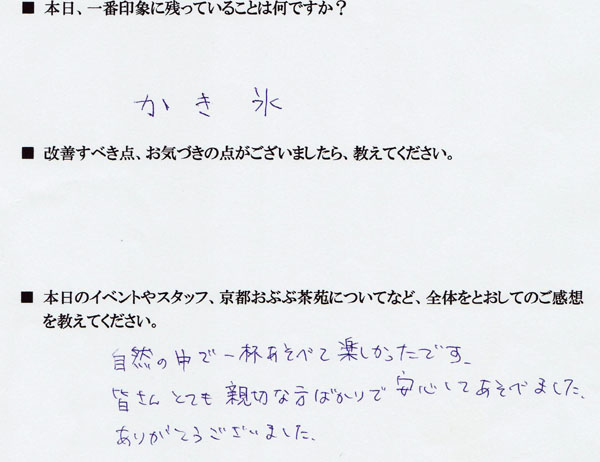 ■ 本日、一番印象に残っていることは何ですか？
かき氷
■ 改善すべき点、お気づきの点がございましたら、教えてください。
■ 本日のイベントやスタッフ、京都おぶぶ茶苑についてなど、全体をとおしてのご感想
を教えてください。
自然の中で一杯あそべて楽しかったです。
皆さんとても親切な方ばかりで安心してあそべました。
ありがとうございました。